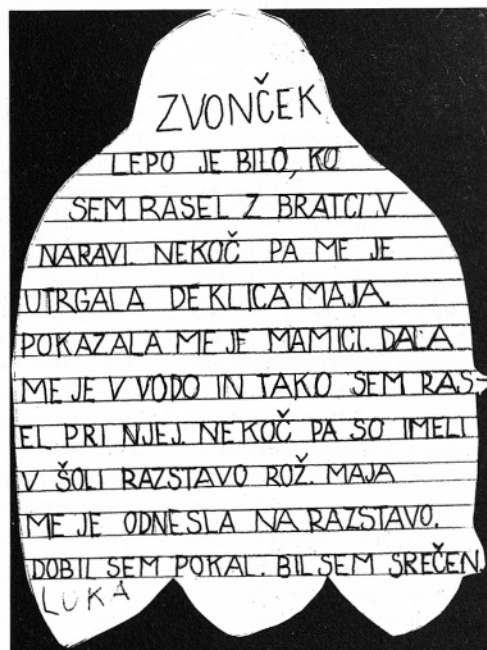 ZVONČEK
LEPO JE BILO, KO
SEM RASEL Z BRATCI V
NARAVI. NEKOČ PA ME JE
UTRGALA DEKLICA MAJA.
POKAZALA ME JE MAMICI. DALA
ME JE V VODO IN TAKO SEM RAS-
EL PRI NJEJ. NEKOČ PA SO IMELI
V ŠOLI RAZSTAVO ROŽ. MAJA
ME JE ODNESLA NA RAZSTAVO.
DOBIL SEM POKAL. BIL SEM SREČEN.
LUKA